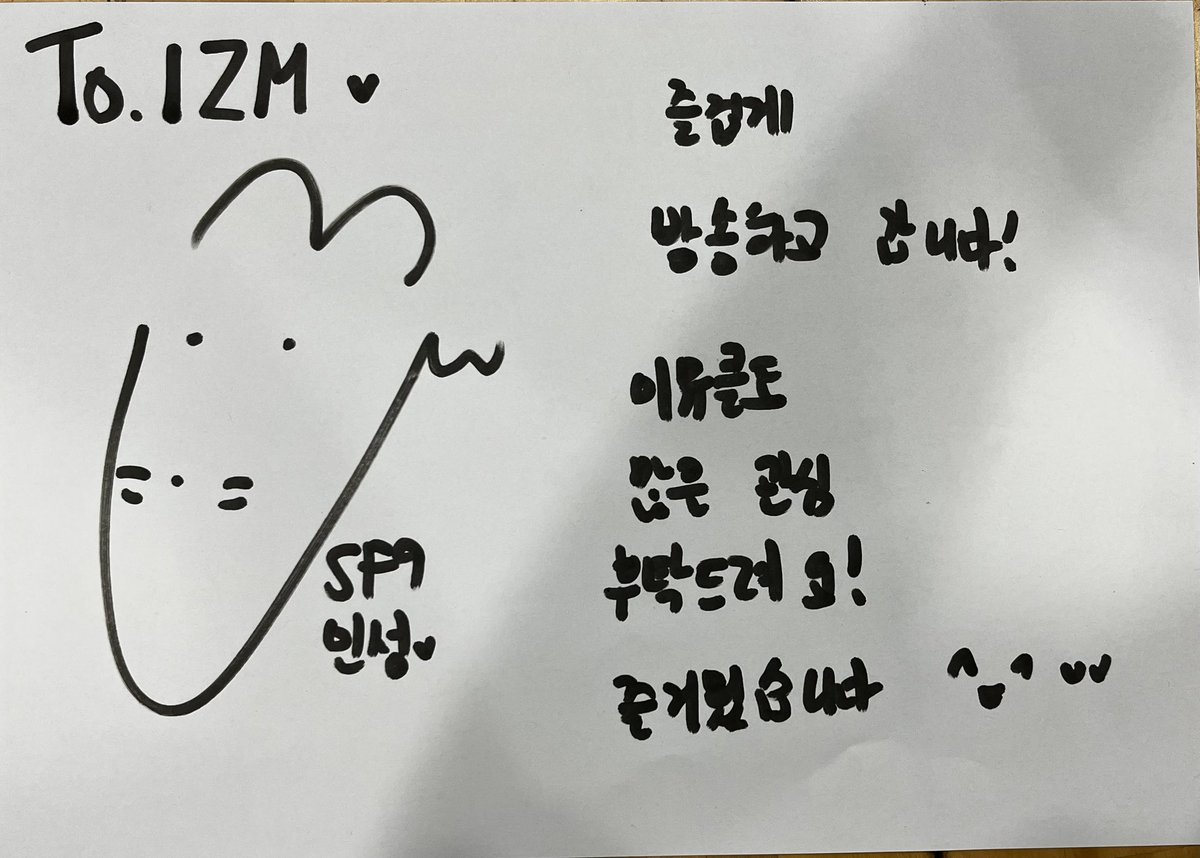 To. IZM ♥
SF9
인성♥
즐겁게
방송하고 갑니다!
이뮤콜도
많은 관심
부탁드려요!
즐거웠습니다 ^ᴗ^ ♥♥